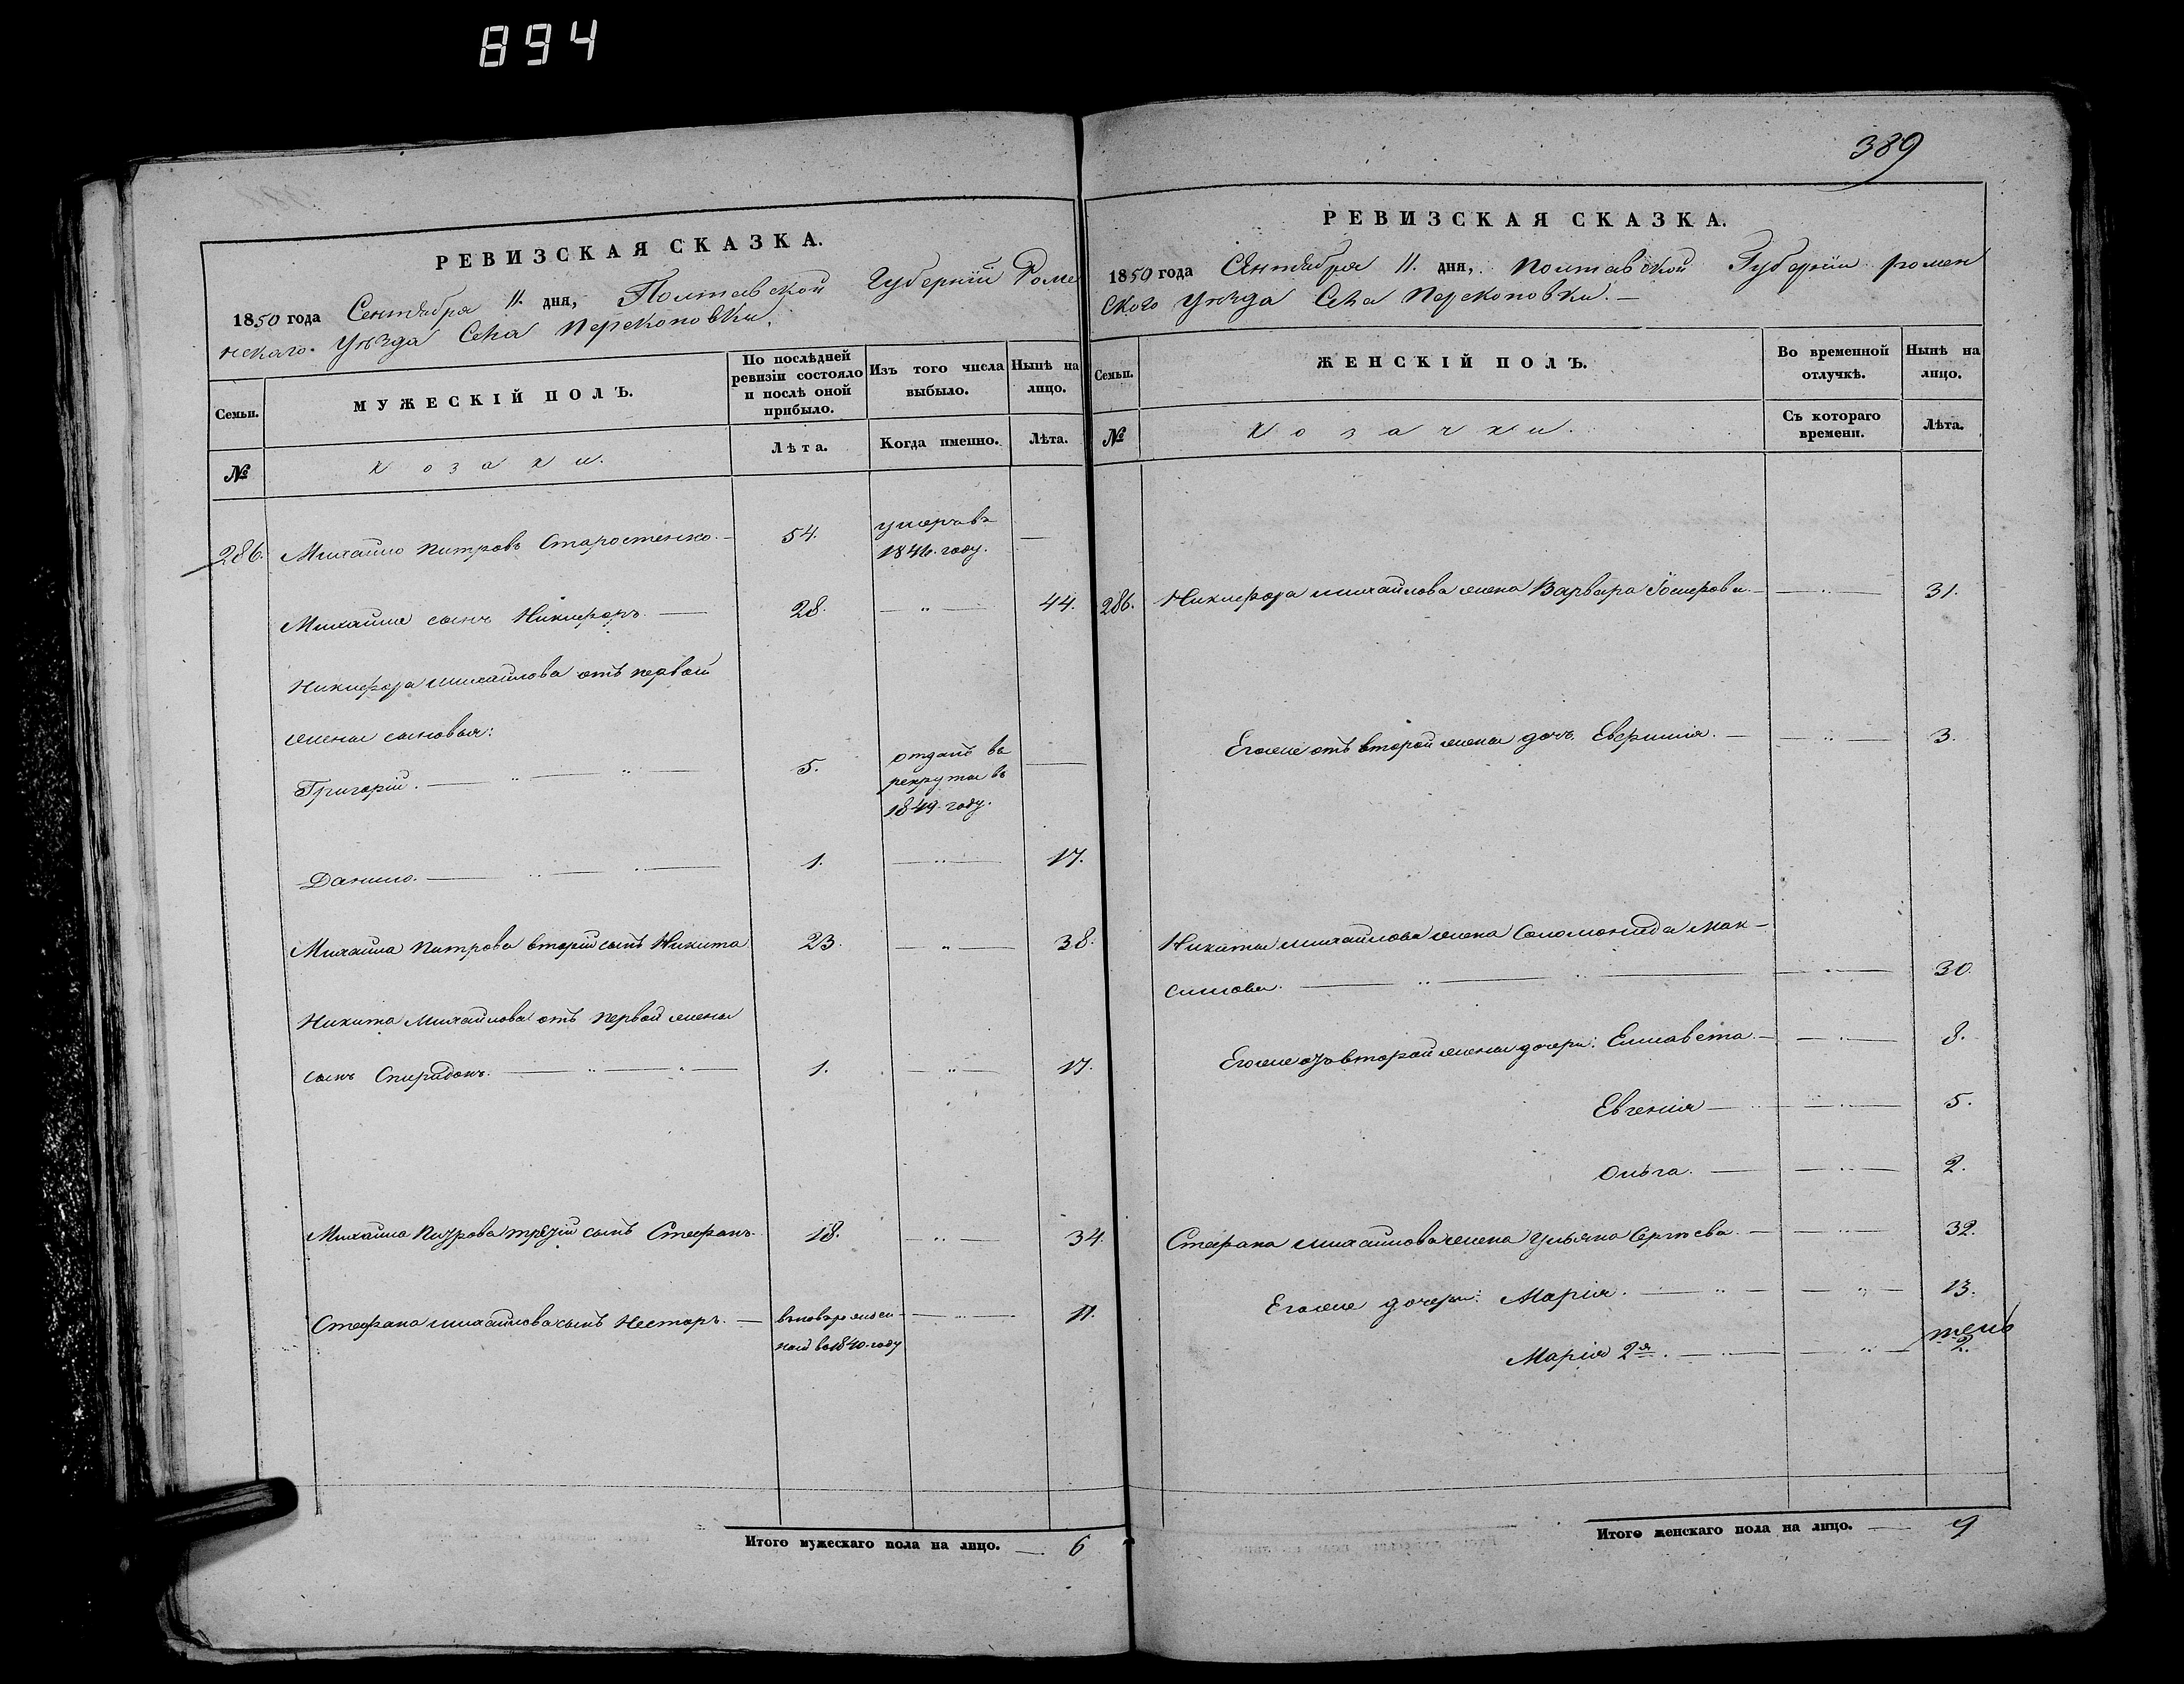 894
РЕВИЗСКАЯ СКАЗКА.
1850 года Сентября 11. дня, Полтавской Губерніи Роме
нскаго. Уѣзда Села Перекоповки.
Семьи.
МУЖЕСКІЙ ПОЛЪ.
По послѣдней ревизіи состояло и послѣ оной прибыло.
Изъ того числа выбыло.
Нынѣ на лицо.
№
Козаки.
Лѣта.
Когда именно.
Лѣта.
286. Михайло Питровъ Старостенко. — 54. умеръ въ —
1841. году.
Михайла сынъ Никифоръ. — 28. — " — 44.
Никифора Михайлова отъ первой
жены сыновья:
Григорій. — " — " — 5. отданъ въ —
рекруты въ
1849. году.
Данило. — " — " — 1. — " — 17.
Михайла Питрова вторій сынъ Никита 23. — " — 38.
Никита Михайлова отъ первой жены
сынъ Спиридонъ. — " — " — 1. " — 17.
Михайла Питрова третій сынъ Стефанъ. 18. — " — 34.
Стефана Михайлова сынъ Несторъ. — вновьрожден — " — 11.
ной въ 1840. году
Итого мужескаго пола на лицо. — 6
389
РЕВИЗСКАЯ СКАЗКА.
1850 года Сентября 11. дня, Полтавской Губерніи Ромен
ского Уѣзда Села Перекоповки. —
Семьи.
ЖЕНСКІЙ ПОЛЪ.
Во временной отлучкѣ.
Нынѣ на лицо.
№
Козачки.
Съ котораго времени.
Лѣта.
286. Никифора Михайлова жена Варвара — " — 31.
Егоже отъ второй жены дочь — — " — 3.
Никиты Михайлова жена Соломонида Мак—
симова. — " — " — — " — 30.
Егоже отъ второй жены дочери: Елисавета — — " — 8.
Евгенія — " — " — 5.
Ольга. — — " — 2.
Стефана Михайлова жена Ульяна Сергѣева. — — " — 32.
Егоже дочери: Марія. — " — — " — 13.
Марія 2я. — " — " —
2.
Итого женскаго пола на лицо. — 9